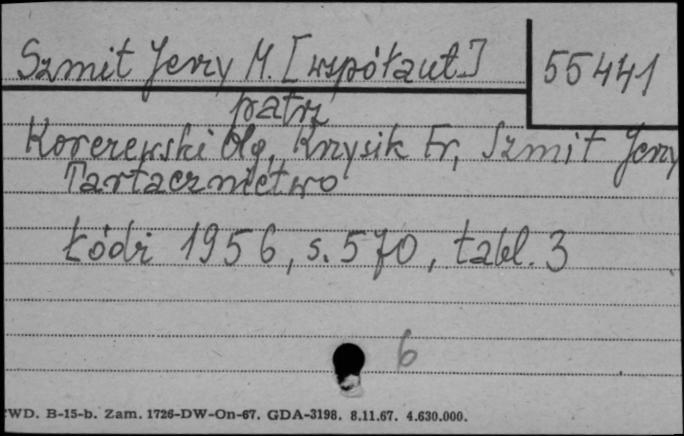 Szmit Jerzy M. [współaut.]
55441
patrz
Korczewski Olg, Krzysik Fr, Szmit Jerzy
Tartacznictwo
Łódź 1956, s. 570, tabl. 3
6
WD. B-15-b. Zam. 1726-DW-On-67. GDA-3198. 8.11.67. 4.630.000.